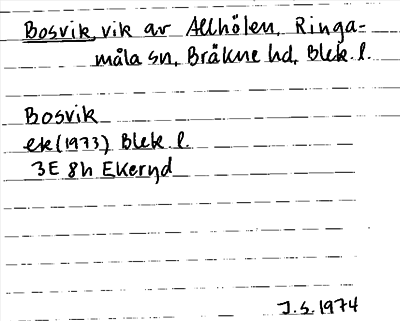 Bosvik, vik av Allhölen, Ringa-
måla sn, Bräkne hd, Blek. l.
Bosvik
ek (1973) Blek l.
3E 8h Ekeryd
J.S. 1974